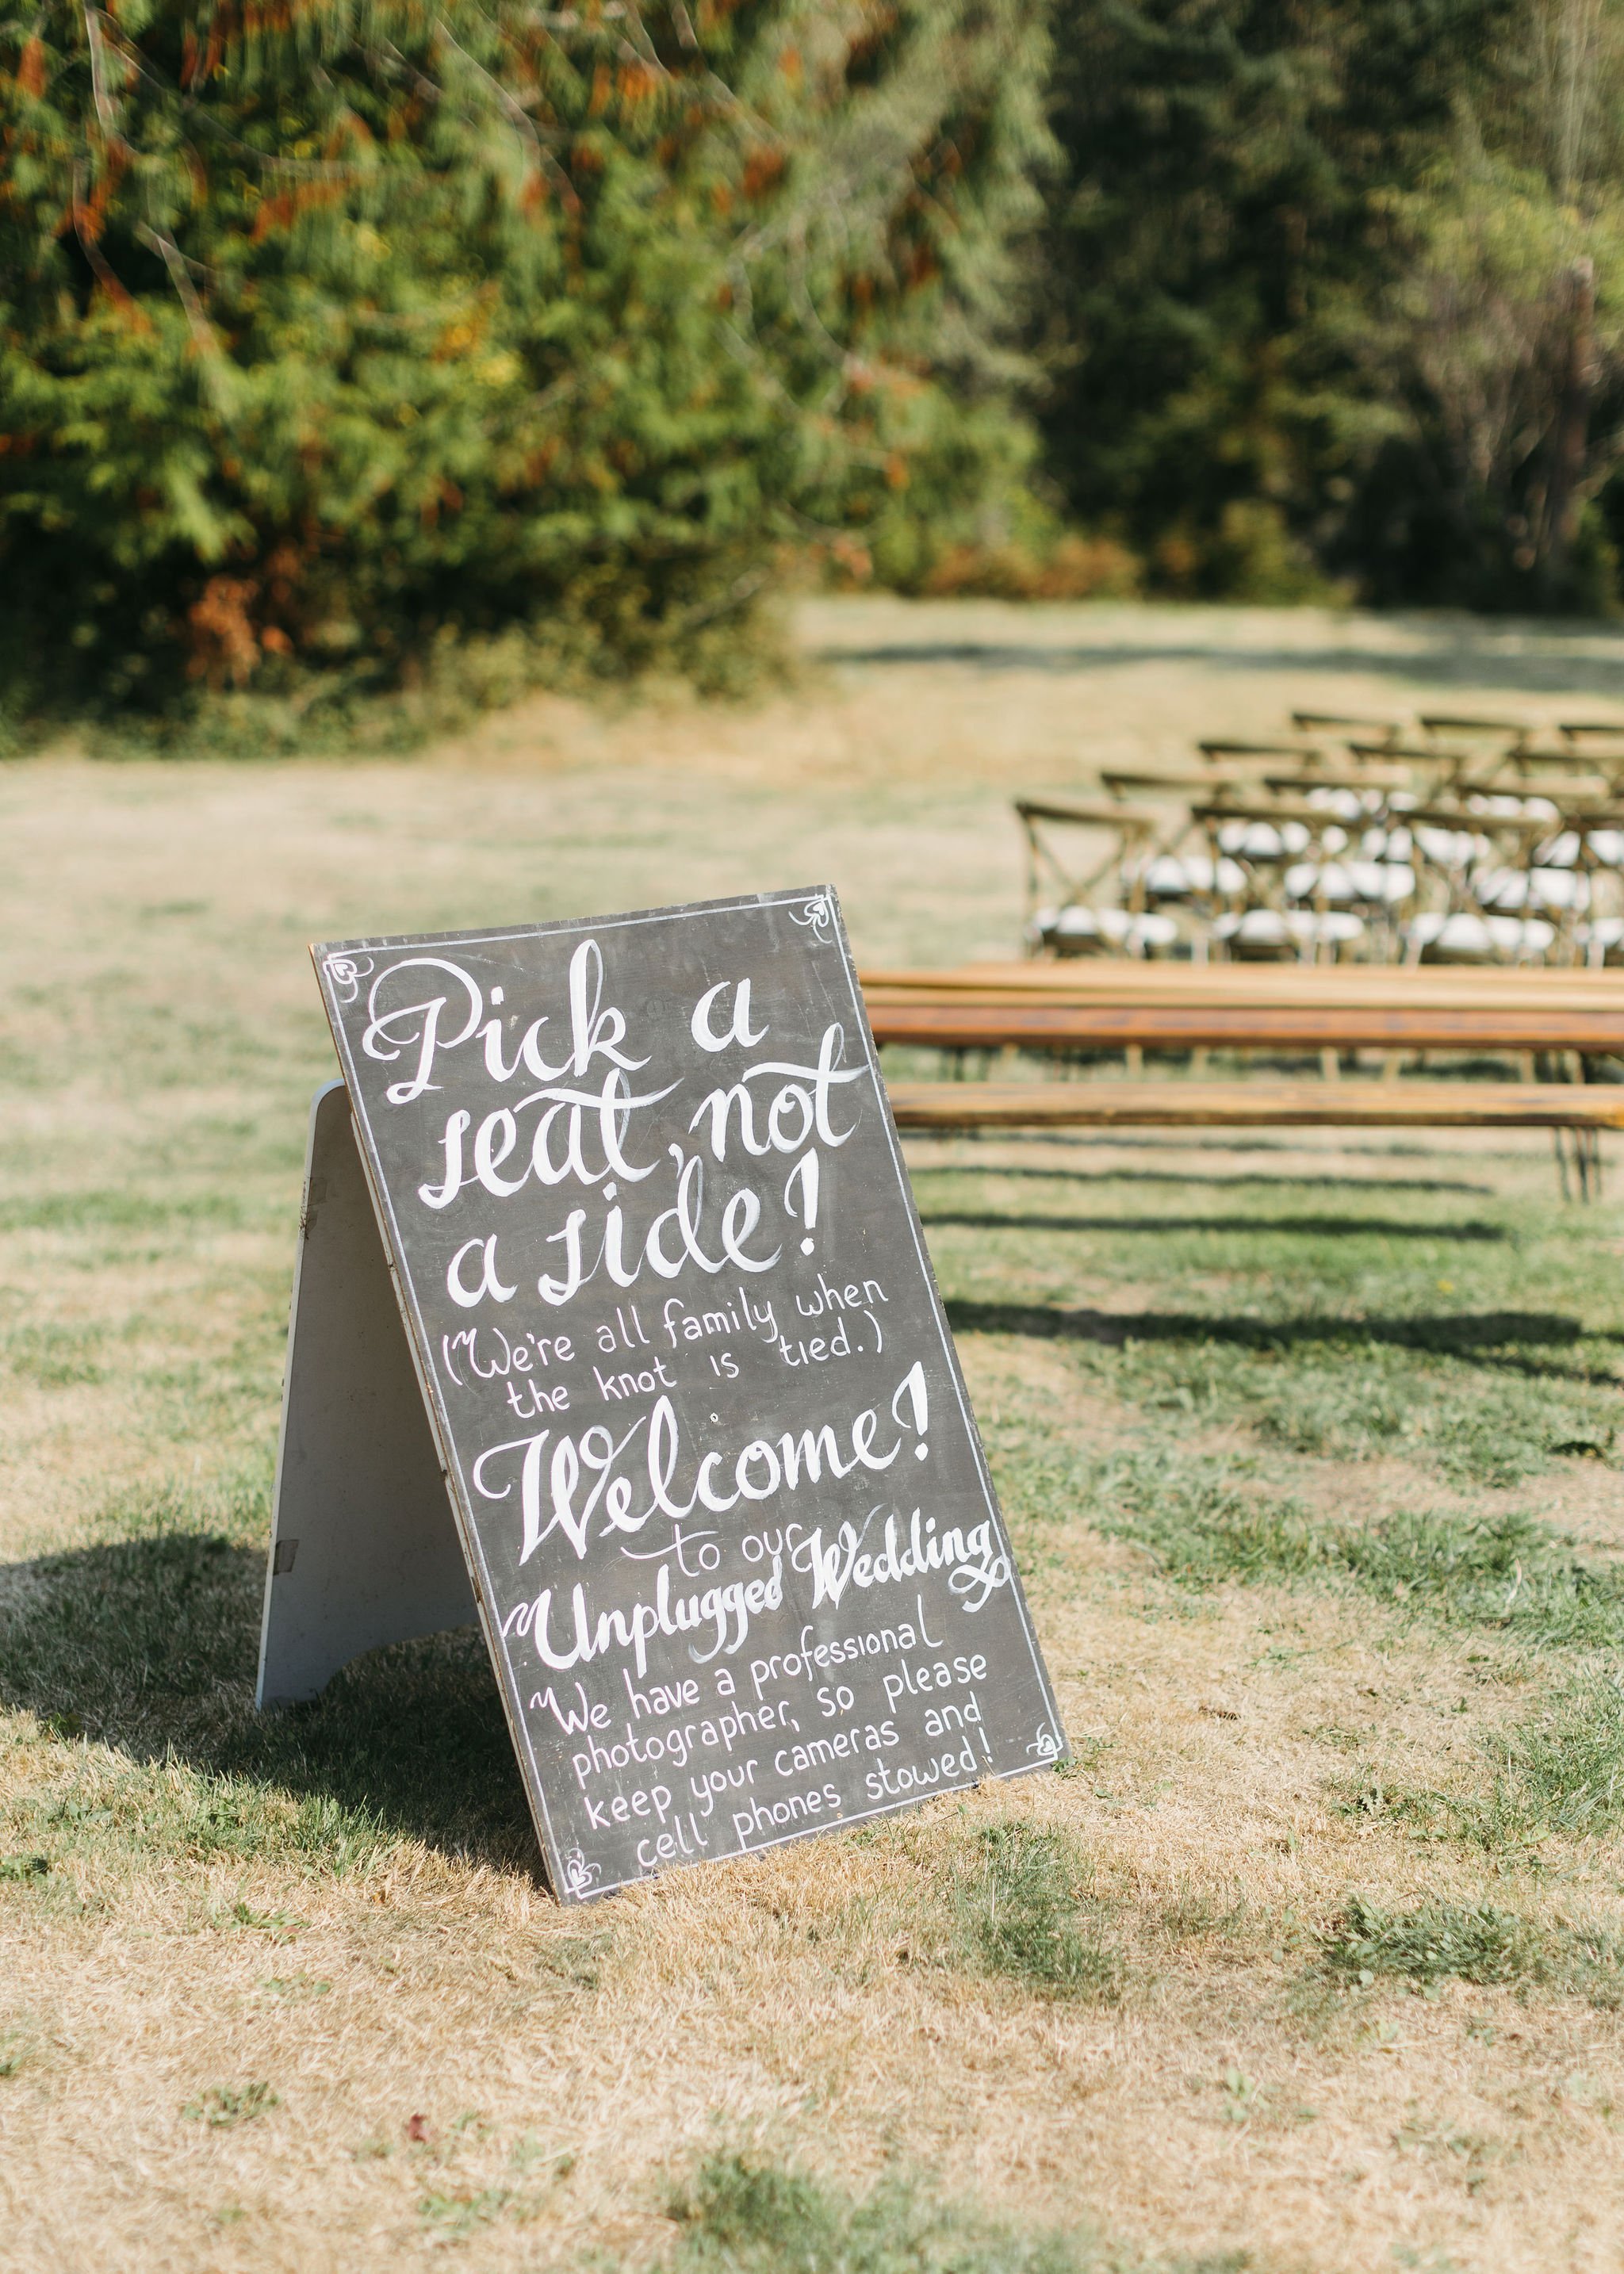 Pick a
seat, not
a side!
(We're all family when
the knot is tied.)
Welcome!
to our
Unplugged Wedding
We have a professional
photographer, so please
keep your cameras and
cell phones stowed!